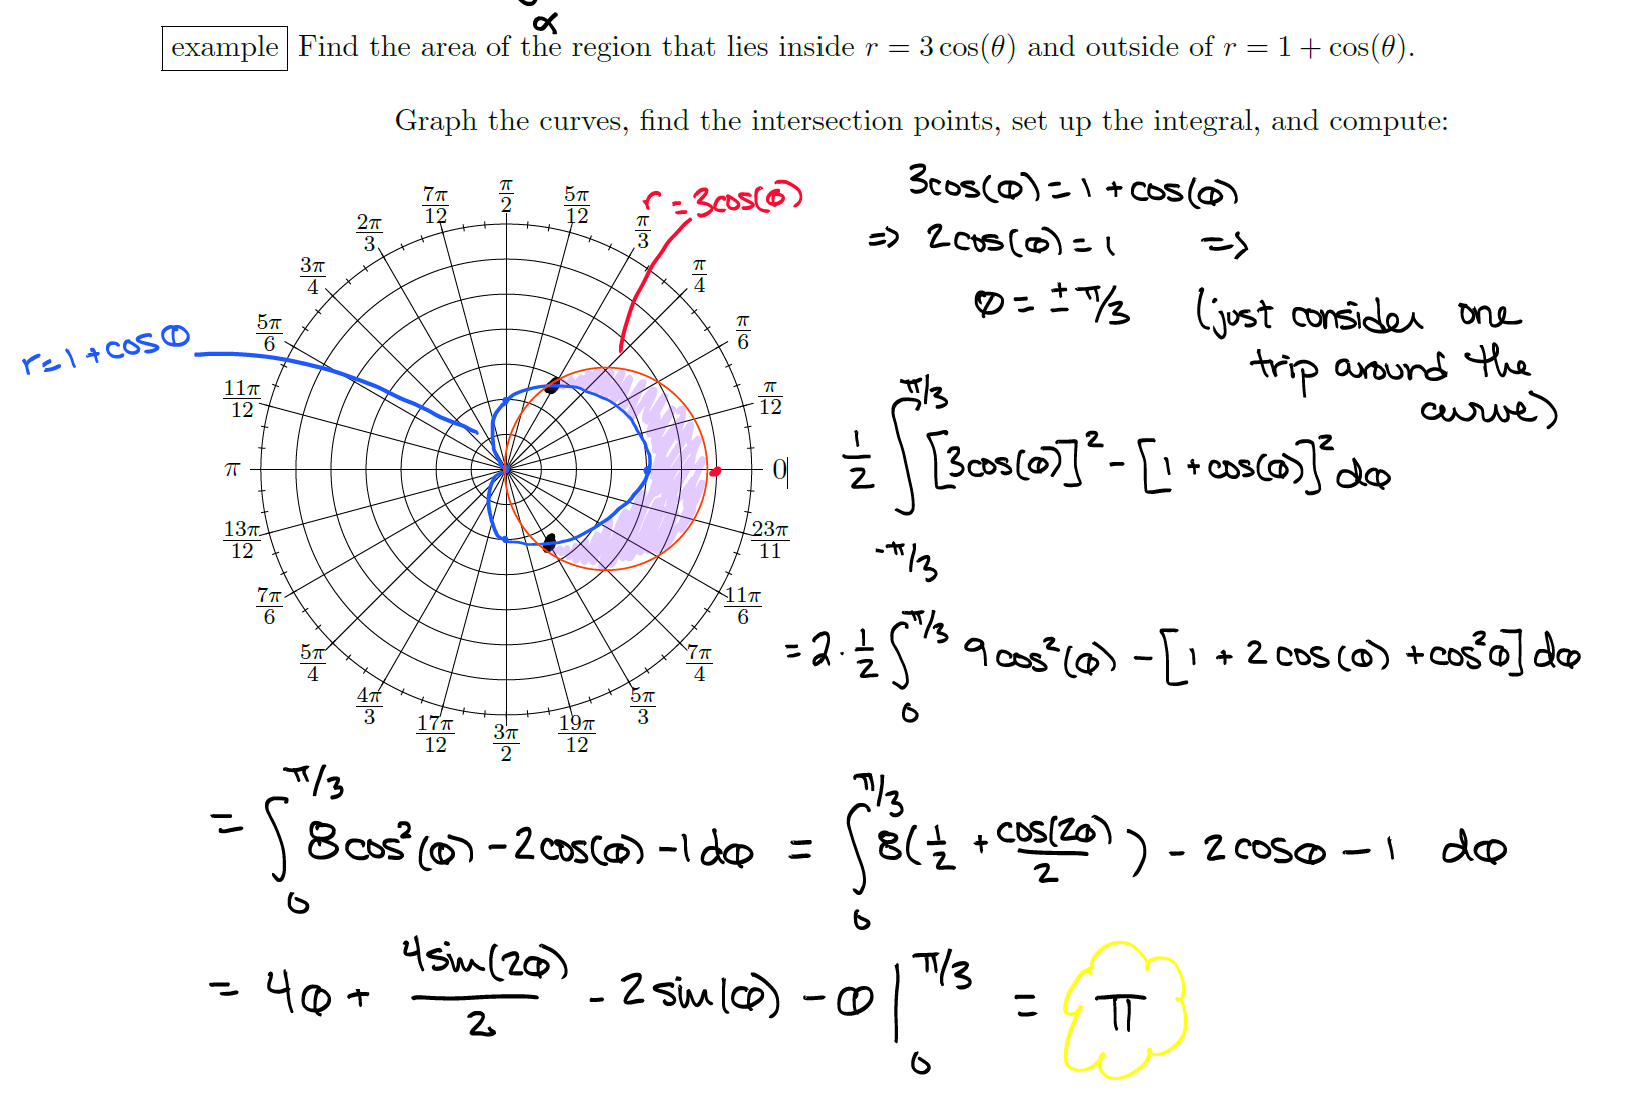 α
example Find the area of the region that lies inside r = 3 cos(θ) and outside of r = 1 + cos(θ).
Graph the curves, find the intersection points, set up the integral, and compute:
r = 3cos(θ)
r = 1 + cos θ
0
π/12
π/6
π/4
π/3
5π/12
π/2
7π/12
2π/3
3π/4
5π/6
11π/12
π
13π/12
7π/6
5π/4
4π/3
17π/12
3π/2
19π/12
5π/3
7π/4
11π/6
23π/11
3cos(θ) = 1 + cos(θ)
=> 2cos(θ) = 1 =>
θ = ± π/3 (just consider one
trip around the
curve)
1/2 ∫_{-π/3}^{π/3} [3cos(θ)]² - [1 + cos(θ)]² dθ
= 2 · 1/2 ∫_0^{π/3} 9cos²(θ) - [1 + 2cos(θ) + cos²θ] dθ
= ∫_0^{π/3} 8cos²(θ) - 2cos(θ) - 1 dθ = ∫_0^{π/3} 8(1/2 + cos(2θ)/2) - 2cosθ - 1 dθ
= 4θ + 4sin(2θ)/2 - 2sin(θ) - θ |_0^{π/3} = π